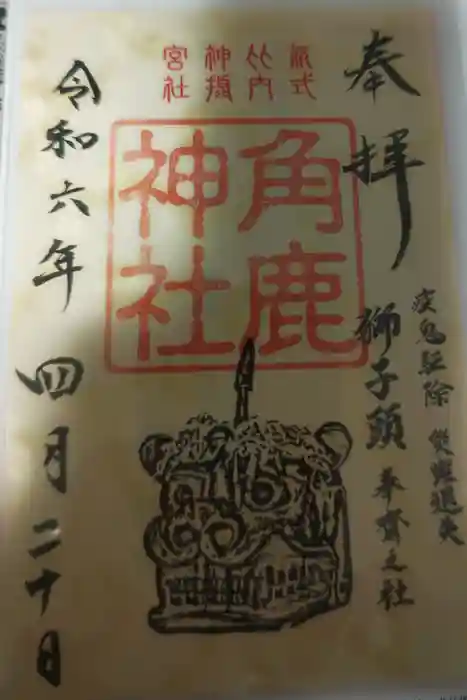 奉拝
疫鬼駆除 災難退失
獅子頭 奉齋之社
延式内
神社
角鹿
神社
令和六年 四月二十日